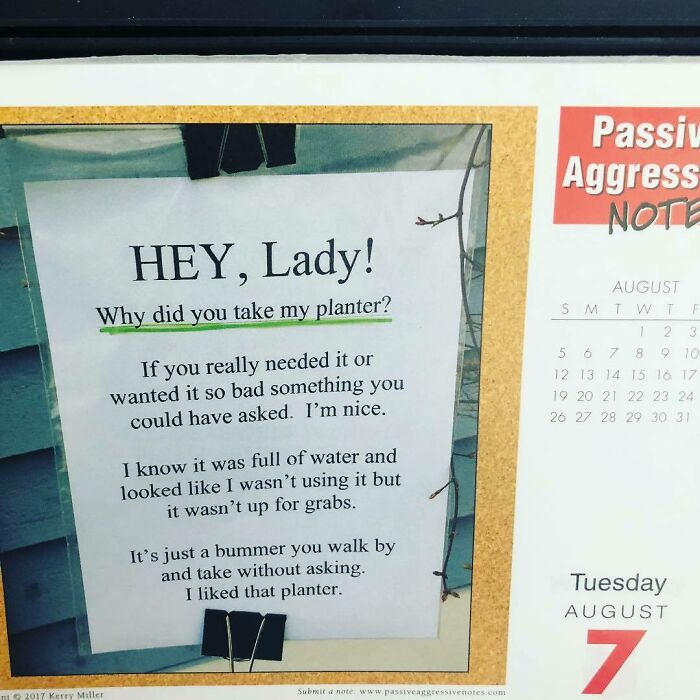 HEY, Lady!
Why did you take my planter?
If you really needed it or
wanted it so bad something you
could have asked. I'm nice.
I know it was full of water and
looked like I wasn't using it but
it wasn't up for grabs.
It's just a bummer you walk by
and take without asking.
I liked that planter.
© 2017 Kerry Miller
Submit a note: www.passiveaggressivenotes.com
AUGUST
S M T W T F
1 2 3
5 6 7 8 9 10
12 13 14 15 16 17
19 20 21 22 23 24
26 27 28 29 30 31
Tuesday
AUGUST
7